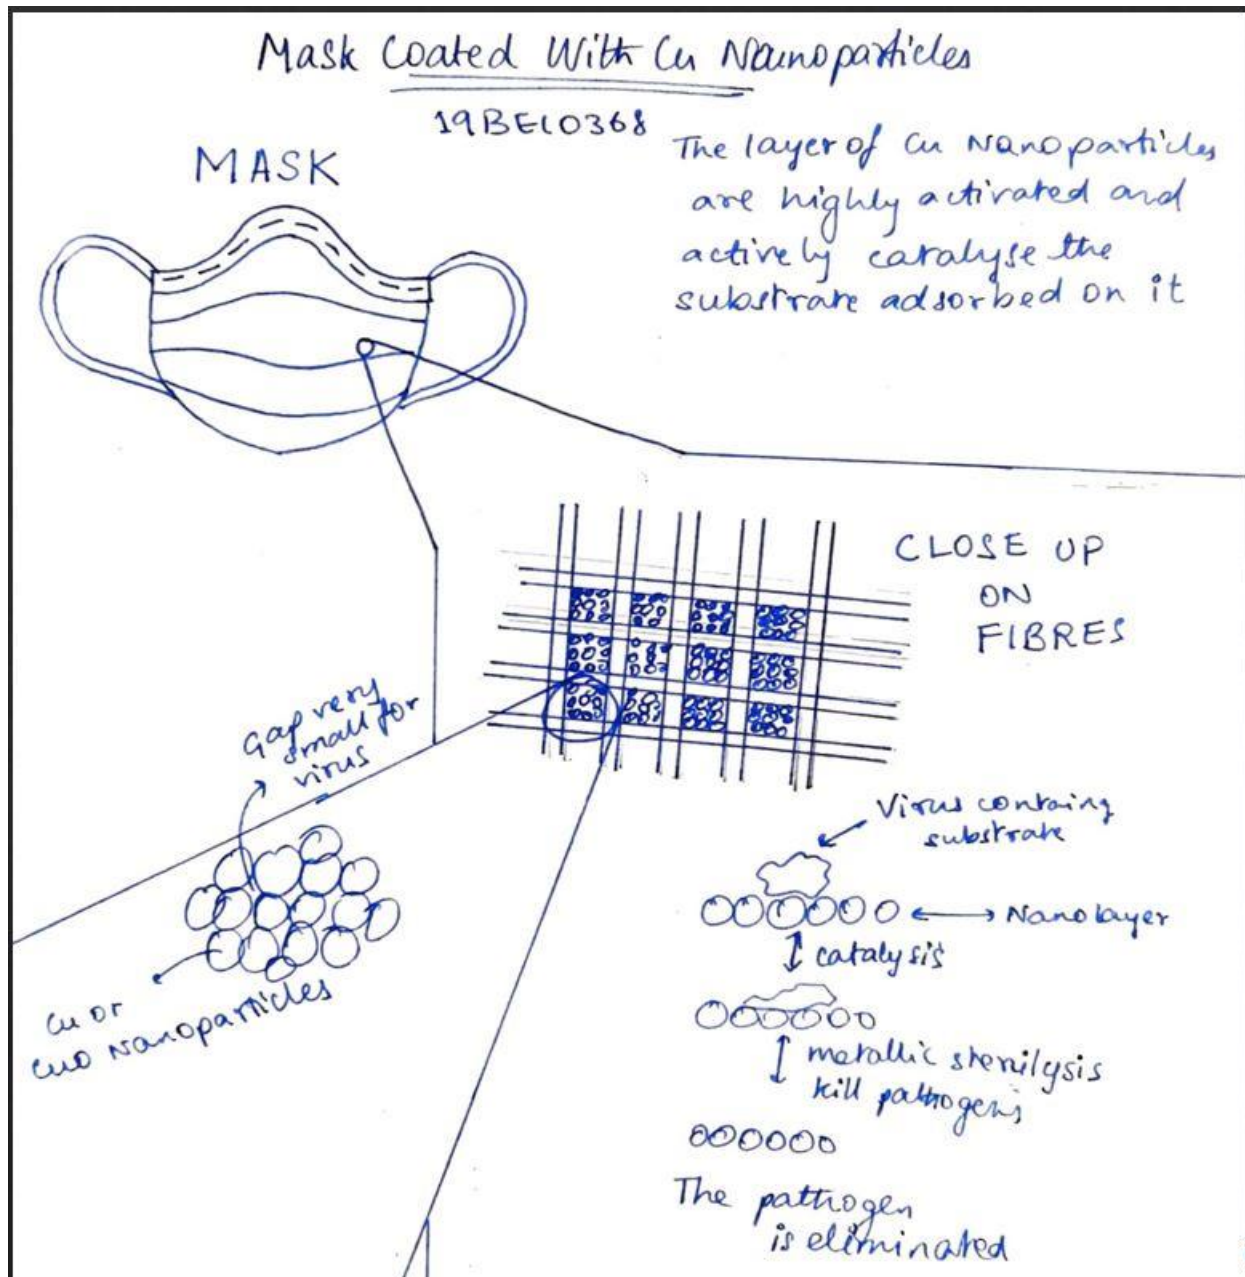 Mask Coated With Cu Nanoparticles
19BEC0368
MASK
The layer of Cu Nanoparticles
are highly activated and
actively catalyse the
substrate adsorbed on it
CLOSE UP
ON
FIBRES
Gap very
small for
virus
Cu or
CuO Nanoparticles
Virus containg
substrate
Nanolayer
catalysis
metallic sterilysis
kill pathogens
The pathogen
is eliminated